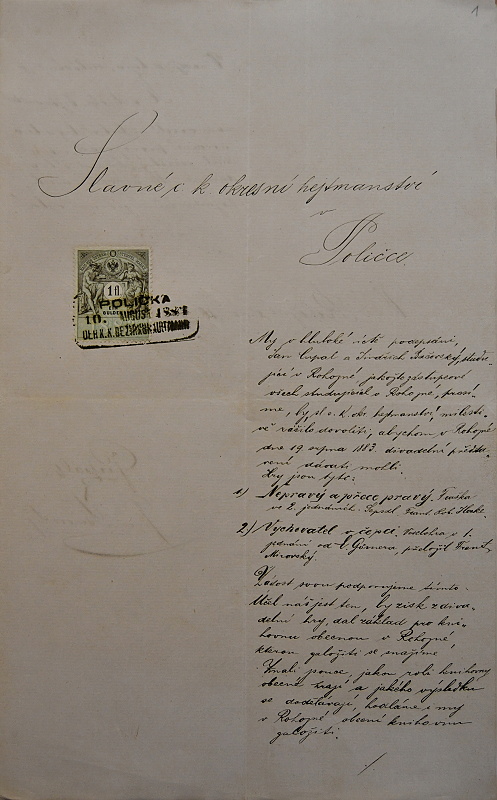 1
Slavné c k okresní hejtmanství
v
Poličce.
1 fl
POLIČKA
GULDEN
10. AUGUST 188
DER K.K. BEZIRKSHAUPTMANN
My v hluboké úctě podepsaní,
Jan Cupal a Jindřich studu-
jící v Rohozné jakožto zástupcové
všech studujících v Rohozné, prosí-
me, by sl. c. k. okr. hejtmanství, milosti-
vě ráčilo dovoliti, abychom v Rohozné
dne 19 srpna 1883. divadelní předsta-
vení dávati mohli.
Hry jsou tyto:
1) Nepravý a přece pravý. Fraška
ve 2. jednáních. Sepsal Frant. Hek.
2) Vychovatel v čepci. Veselohra v 1.
jednání od C. Görnera, přeložil Frant.
Mirovský.
Žádost svou podporujeme tímto:
Účel náš jest ten, by zisk z diva-
delní hry, dal základ pro kni-
hovnu obecnou v Rohozné,
kterou založiti se snažíme.
Znali pouce, jakou roli knihovny
obecné hrají a jakého výsledku
se dodělávají, hodláme i my
v Rohozné obecní knihovnu
založiti.